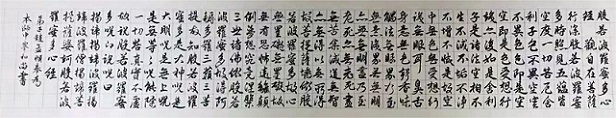 般若波羅蜜多心
經 觀自在菩薩
行深般若波羅蜜多
時照見五蘊皆
空度一切苦厄舍
利子色不異空空
不異色色即是空
空即是色受想行
識亦復如是舍利
子是諸法空相不
生不滅不垢不淨
不增不減是故空
中無色無受想行
識無眼耳鼻舌
身意無色聲香味
觸法無眼界乃至
無意識界無無明
亦無無明盡乃至
無老死亦無老死盡
無苦集滅道無智
亦無得以無所得
故菩提薩埵依般
若波羅蜜多故心
無罣礙無罣礙故
無有恐怖遠離顛
倒夢想究竟涅槃
三世諸佛依般若
波羅蜜多故得阿
耨多羅三藐三菩
提故知般若波羅
蜜多是大神咒是
大明咒是無上咒
是無等等咒能除
一切苦真實不虛
故說般若波羅蜜
多咒即說咒曰
揭諦揭諦波羅揭
諦波羅僧揭諦菩
提薩婆訶般若波
羅蜜多心經
弟子趙孟頫奉為
本師中峯和尚書